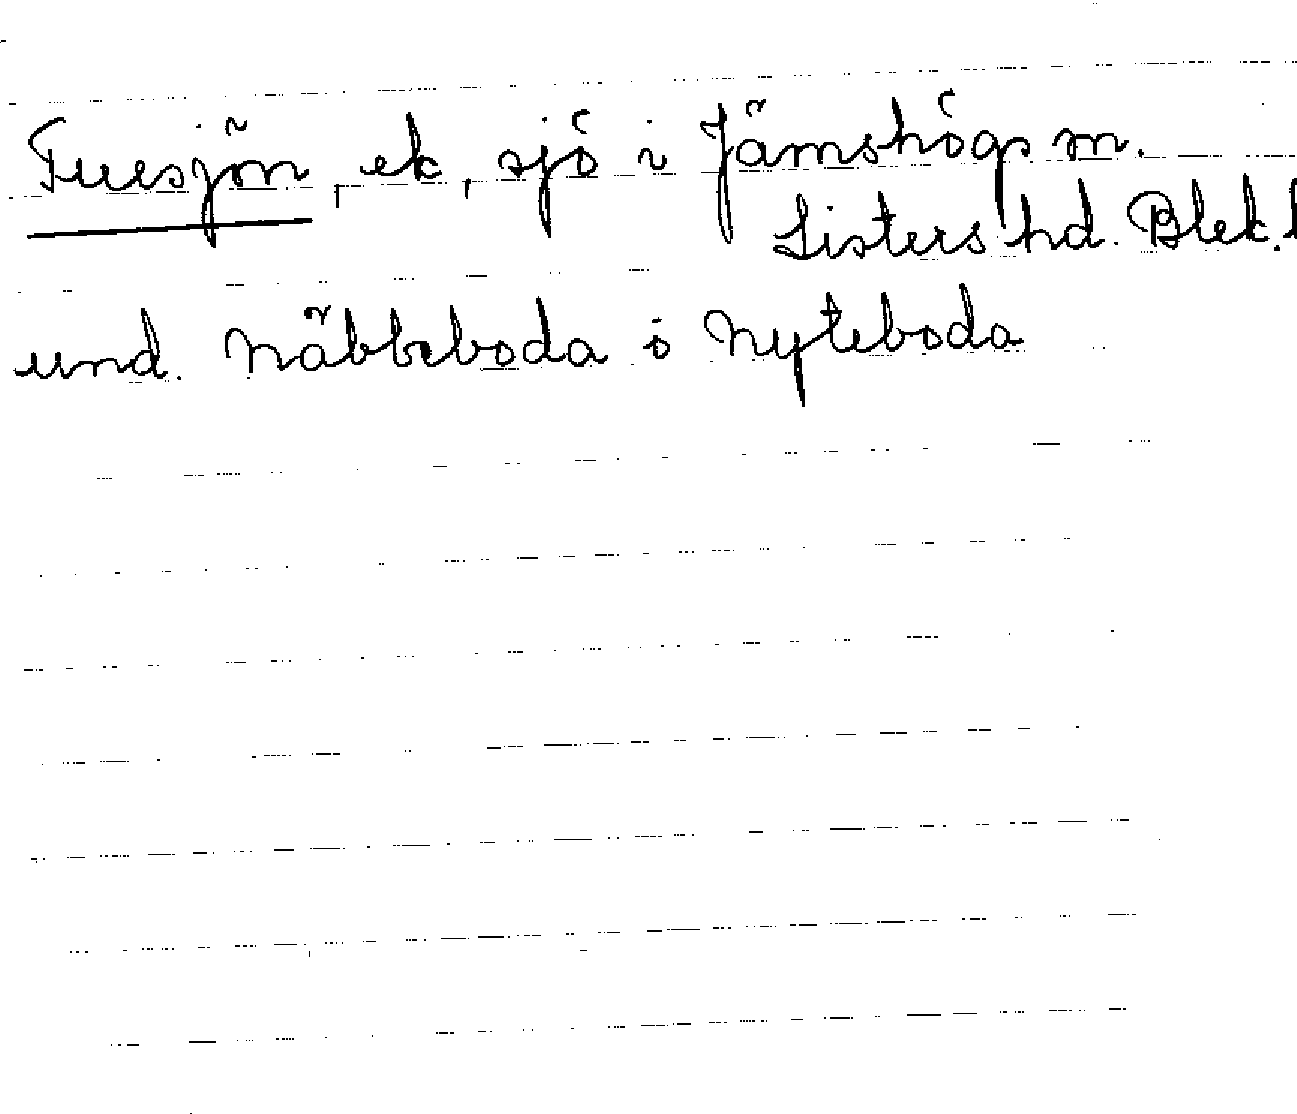 Furesjön, ek, sjö i Jämshögs sn.
Listers hd. Blek. l
und. Näbbeboda o Nyteboda